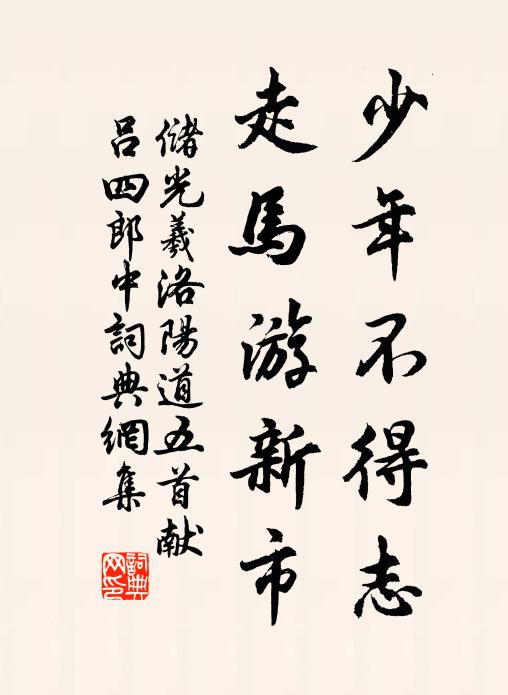 少年不得志
走馬游新市
儲光羲洛陽道五首献
呂四郎中詞典網集
詞典
网印